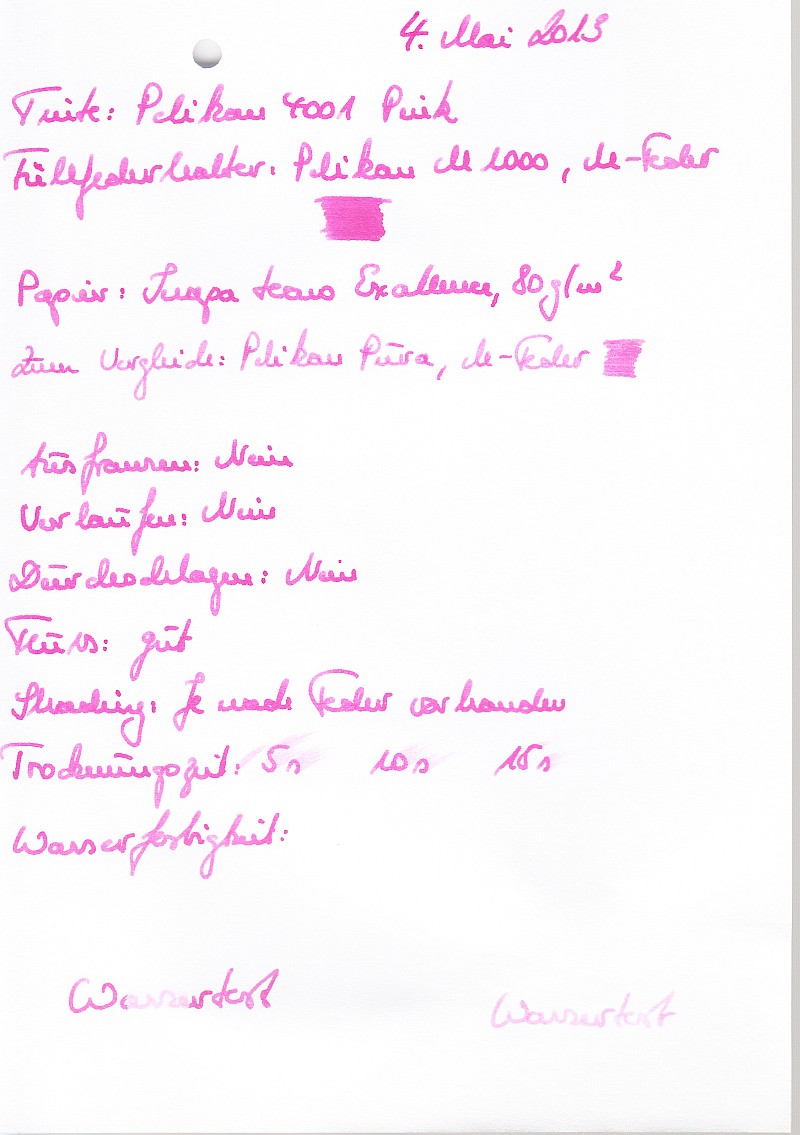 4. Mai 2013
Tinte: Pelikan 4001 Pink
Füllfederhalter: Pelikan M 1000, M-Feder
Papier: Inapa tecno Excellence, 80g/m²
Zum Vergleich: Pelikan Pura, M-Feder
Ausfransen: Nein
Verlaufen: Nein
Durchschlagen: Nein
Fluss: gut
Shading: Je nach Feder vorhanden
Trocknungszeit: 5s 10s 15s
Wasserfestigkeit:
Wassertest Wassertest